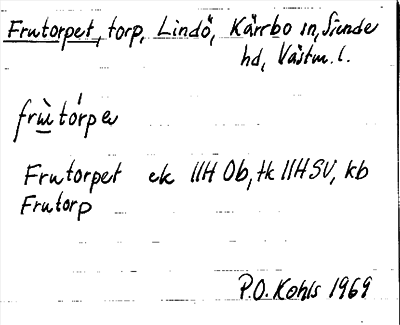 Frutorpet, torp, Lindö, Kärrbo sn, Siende
hd, Västm. l.
frù̱tórpə
Frutorpet ek 11H 0b, tk 11H SV, kb
Frutorp
P.O. Kohls 1969